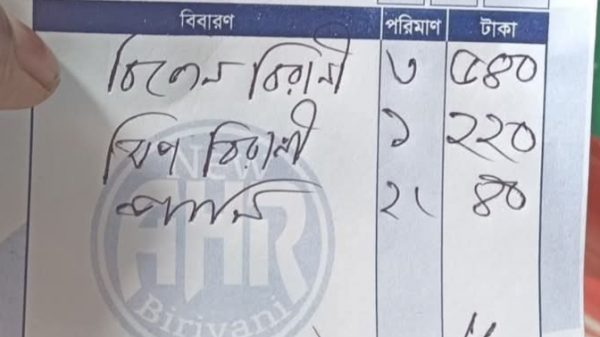 বিবারণ পরিমাণ টাকা
চিকেন বিরানী ৩ ৫৪০
বিপ বিরানী ১ ২২০
পানি ২৷ ৪০
New
AHR
Biriyani